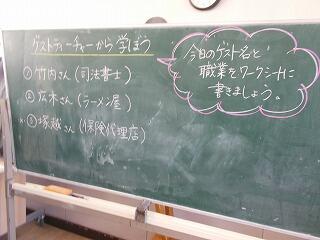 ゲストティーチャーから学ぼう
① 竹内さん (司法書士)
② 広木さん (ラーメン屋)
③ 塚越さん (保険代理店)
今日のゲスト名と
職業をワークシートに
書きましょう。